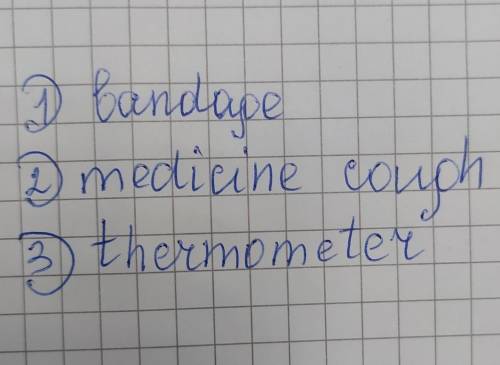 1) bandage
2) medicine cough
3) thermometer